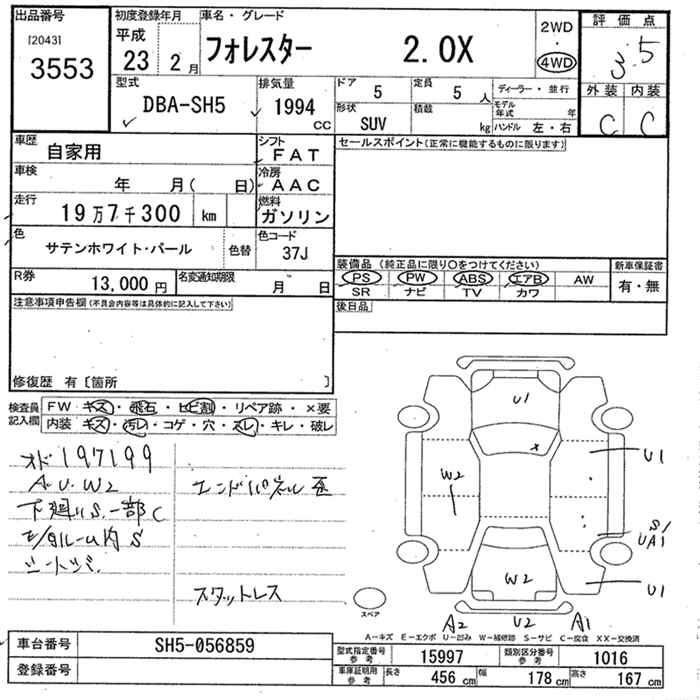 出品番号
[2043]
3553
初度登録年月
平成
23 2月
車名・グレード
フォレスター 2.0X
2WD
・
4WD
評価点
3.5
外装 内装
C C
型式
DBA-SH5
排気量
1994
CC
ドア
5
定員
5 人
形状
SUV
積載
kg
ディーラー・並行
モデル年式 年
ハンドル 左・右
車歴
自家用
シフト
FAT
車検
年 月( 日)
冷房
AAC
走行
19万7千300 km
燃料
ガソリン
色
サテンホワイト・パール
色替
色コード
37J
R券
13,000 円
名変通知期限
月 日
セールスポイント(正常に機能するものに限ります)
装備品 (純正品に限り○をつけてください)
PS PW ABS エアB AW
SR ナビ TV カワ
新車保証書
有・無
後日品
注意事項申告欄(不具合内容等は具体的に記入して下さい)
修復歴 有〔箇所 〕
検査員記入欄
FW キズ・飛石・ヒビ割・リペア跡・×要
内装 キズ・汚レ・コゲ・穴・スレ・キレ・破レ
オド 197199
A.U.W2
下廻りS.一部C
エンドパネル歪
スタットレス
U1
×
W2
U1
S/
UA1
U1
W2
A2 U2 A1
スペア
A-キズ E-エクボ U-凹み W-補修跡 S-サビ C-腐食 XX-交換済
車台番号
SH5-056859
登録番号
型式指定番号 参考
15997
類別区分番号 参考
1016
車庫証明用 参考
長さ 456 cm
幅 178 cm
高さ 167 cm